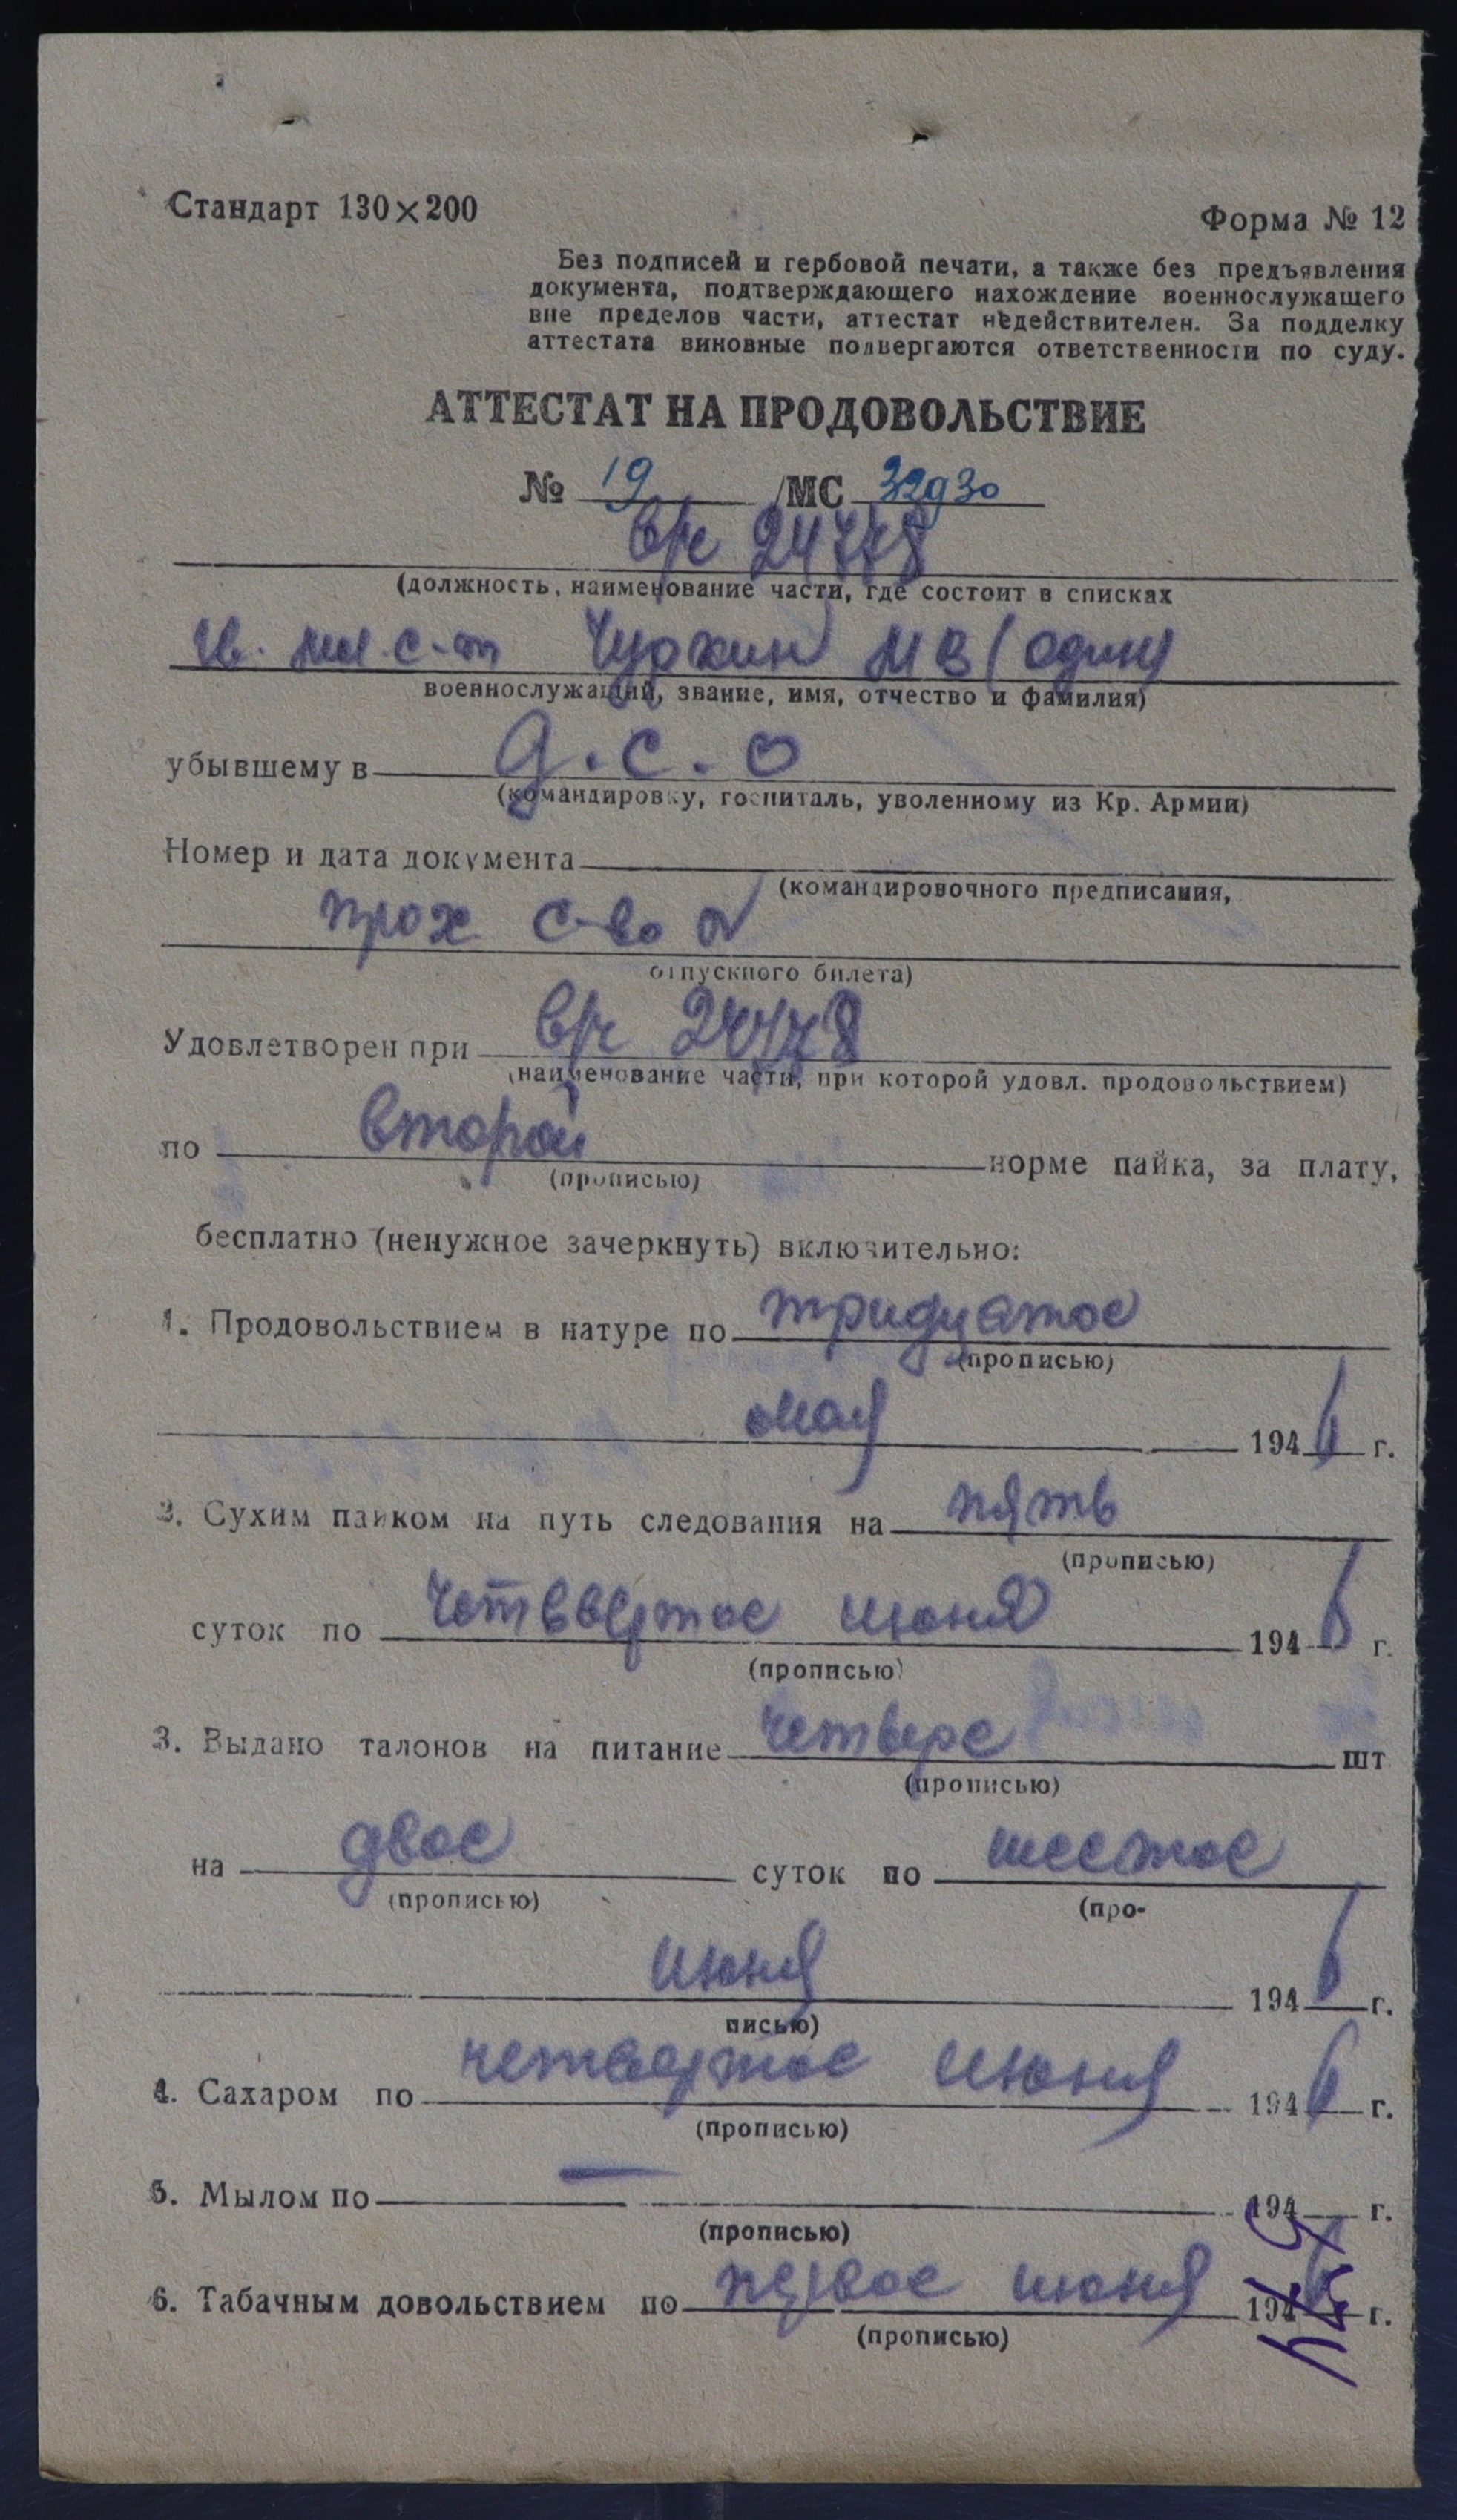 Стандарт 130×200
Форма № 12
Без подписей и гербовой печати, а также без предъявления
документа, подтверждающего нахождение военнослужащего
вне пределов части, аттестат недействителен. За подделку
аттестата виновные подвергаются ответственности по суду.
АТТЕСТАТ НА ПРОДОВОЛЬСТВИЕ
№ 19 /МС 32930
в/ч 24778
(должность, наименование части, где состоит в списках
гв. мл. с-т МВ (один)
военнослужащий, звание, имя, отчество и фамилия)
убывшему в д.с.о
(командировку, госпиталь, уволенному из Кр. Армии)
Номер и дата документа
(командировочного предписания,
прох с-во
отпускного билета)
Удовлетворен при в/ч 24778
(наименование части, при которой удовл. продовольствием)
по второй норме пайка, за плату,
(прописью)
бесплатно (ненужное зачеркнуть) включительно:
1. Продовольствием в натуре по тридцатое
(прописью)
мая 1946 г.
2. Сухим пайком на путь следования на пять
(прописью)
суток по четввертое июня 1946 г.
(прописью)
3. Выдано талонов на питание четвере шт
(прописью)
на двое суток по шестое
(прописью) (про-
июня 1946 г.
писью)
4. Сахаром по четвертое июня 1946 г.
(прописью)
5. Мылом по — 194 г.
(прописью)
6. Табачным довольствием по первое июня 1946 г.
(прописью)